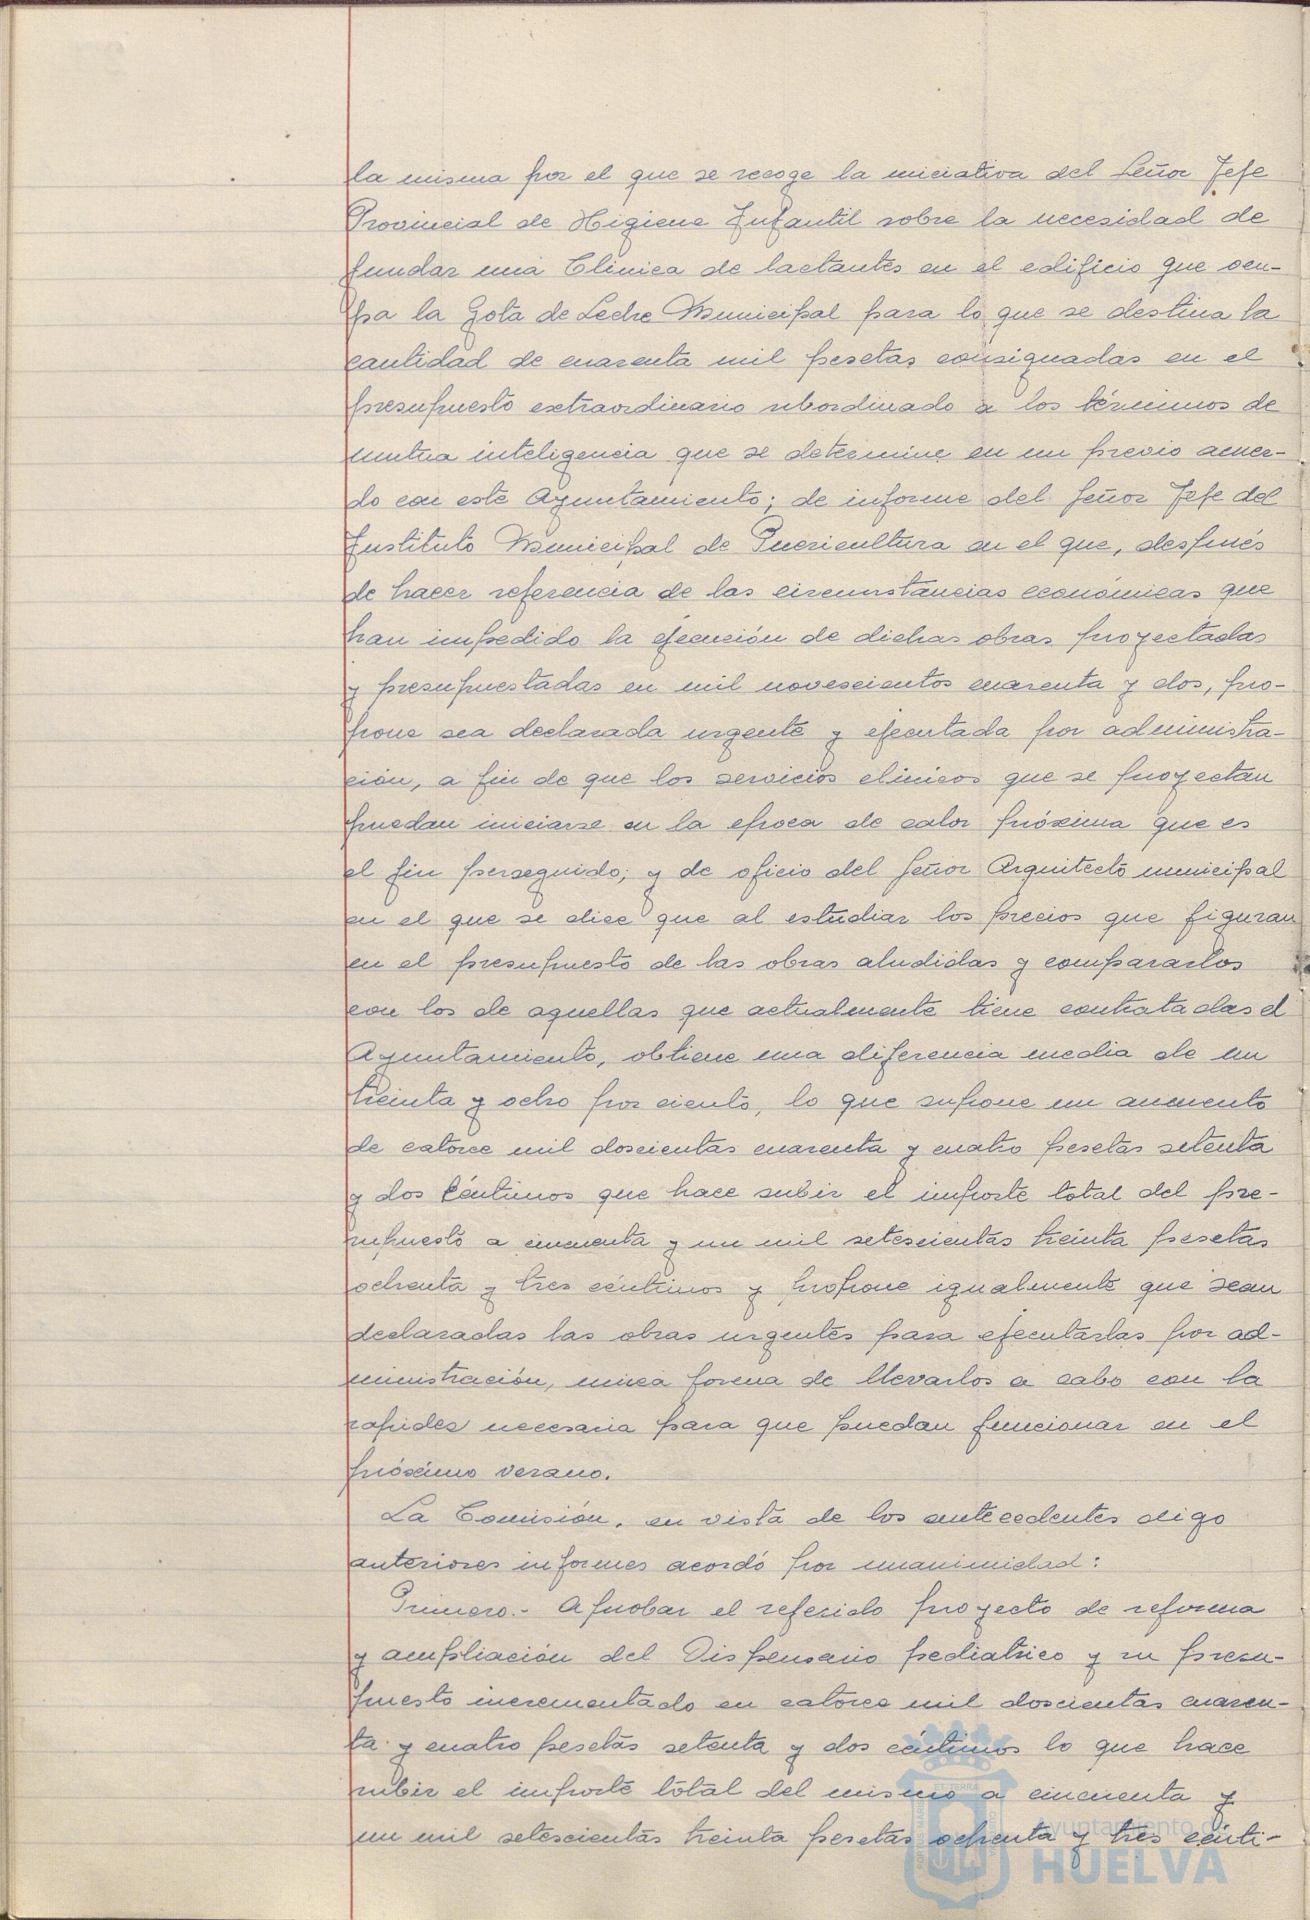 la misma por el que se recoge la iniciativa del Señor Jefe
Provincial de Higiene Infantil sobre la necesidad de
fundar una Clínica de lactantes en el edificio que ocu-
pa la Gota de Leche Municipal para lo que se destina la
cantidad de cuarenta mil pesetas consignadas en el
presupuesto extraordinario subordinado a los términos de
mutua inteligencia que se determine en un previo acuer-
do con este Ayuntamiento; de informe del Señor Jefe del
Instituto Municipal de Puericultura en el que, después
de hacer referencia de las circunstancias económicas que
han impedido la ejecución de dichas obras proyectadas
y presupuestadas en mil novescientos cuarenta y dos, pro-
pone sea declarada urgente y ejecutada por administra-
ción, a fin de que los servicios clínicos que se proyectan
puedan iniciarse en la epoca de calor próxima que es
el fin perseguido; y de oficio del Señor Arquitecto municipal
en el que se dice que al estudiar los precios que figuran
en el presupuesto de las obras aludidas y compararlos
con los de aquellas que actualmente tiene contratadas el
Ayuntamiento, obtiene una diferencia media de un
treinta y ocho por ciento, lo que supone un aumento
de catorce mil doscientas cuarenta y cuatro pesetas setenta
y dos céntimos que hace subir el importe total del pre-
supuesto a cincuenta y un mil setescientas treinta pesetas
ochenta y tres céntimos y propone igualmente que sean
declaradas las obras urgentes para ejecutarlas por ad-
ministración, unica forma de llevarlos a cabo con la
rapidez necesaria para que puedan funcionar en el
próximo verano.
La Comisión, en vista de los antecedentes digo
anteriores informes acordó por unanimidad:
Primero.- Aprobar el referido proyecto de reforma
y ampliación del Dispensario pediatrico y su presu-
puesto incrementado en catorce mil doscientas cuaren-
ta y cuatro pesetas setenta y dos céntimos lo que hace
subir el importe total del mismo a cincuenta y
un mil setescientas treinta pesetas ochenta y tres cénti-
Ayuntamiento de
HUELVA